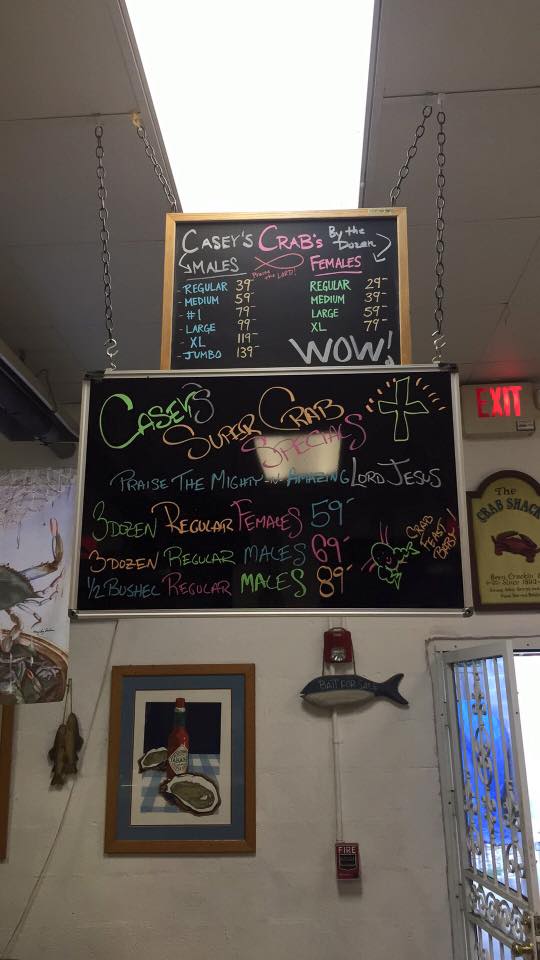 CASEY'S CRAB'S By the Dozen
MALES Praise the LORD! FEMALES
- REGULAR 39-
- MEDIUM 59-
- #1 79-
- LARGE 99-
- XL 119-
- JUMBO 139-
REGULAR 29-
MEDIUM 39-
LARGE 59-
XL 79-
WOW!
CASEY'S
SUPER CRAB
SPECIALS
PRAISE THE MIGHTY-N-AMAZING LORD JESUS
3 DOZEN REGULAR FEMALES 59-
3 DOZEN REGULAR MALES 69-
1/2 BUSHEL REGULAR MALES 89-
CRAB
FEAST
BABY!
EXIT
The
CRAB SHACK
Been Crackin'
Since
BAIT FOR SALE
TABASCO
FIRE